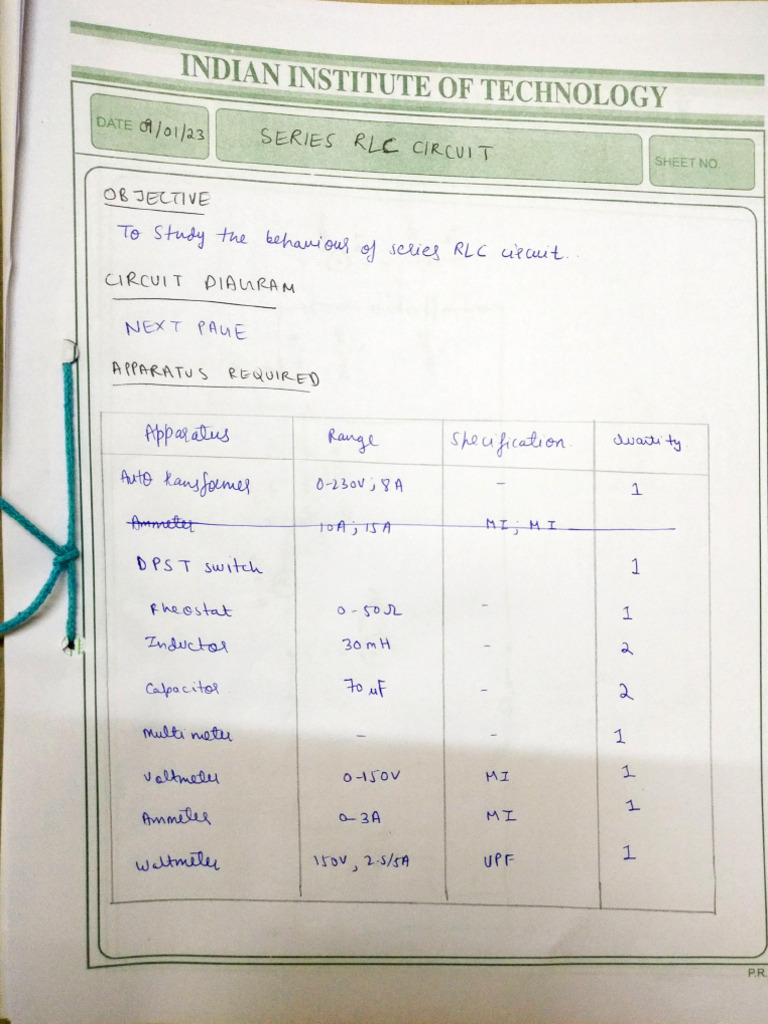 INDIAN INSTITUTE OF TECHNOLOGY
DATE 09/01/23 SERIES RLC CIRCUIT SHEET NO.
OBJECTIVE
To Study the behaviour of series RLC circuit..
CIRCUIT DIAGRAM
NEXT PAGE
APPARATUS REQUIRED
Apparatus Range Specification Quantity
Auto transformer 0-230V; 8A - 1
Ammeter 10A; 15A MI; MI
DPST switch 1
Rheostat 0-50Ω - 1
Inductor 30mH - 2
Capacitor 70 uF - 2
Multimeter - - 1
Voltmeter 0-150V MI 1
Ammeter 0-3A MI 1
Wattmeter 150V, 2.5/5A UPF 1
P.R.